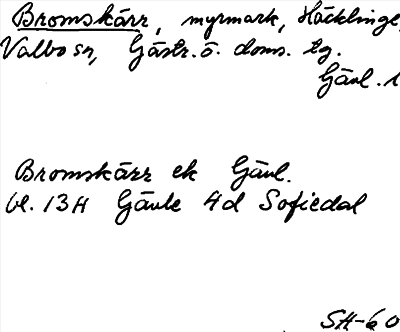 Bromskärr, myrmark, Häcklinge,
Valbo sn, Gästr. ö. doms. tg.
Gävl. l
Bromskärr ek Gävl.
bl. 13H Gävle 4d Sofiedal
SH-60